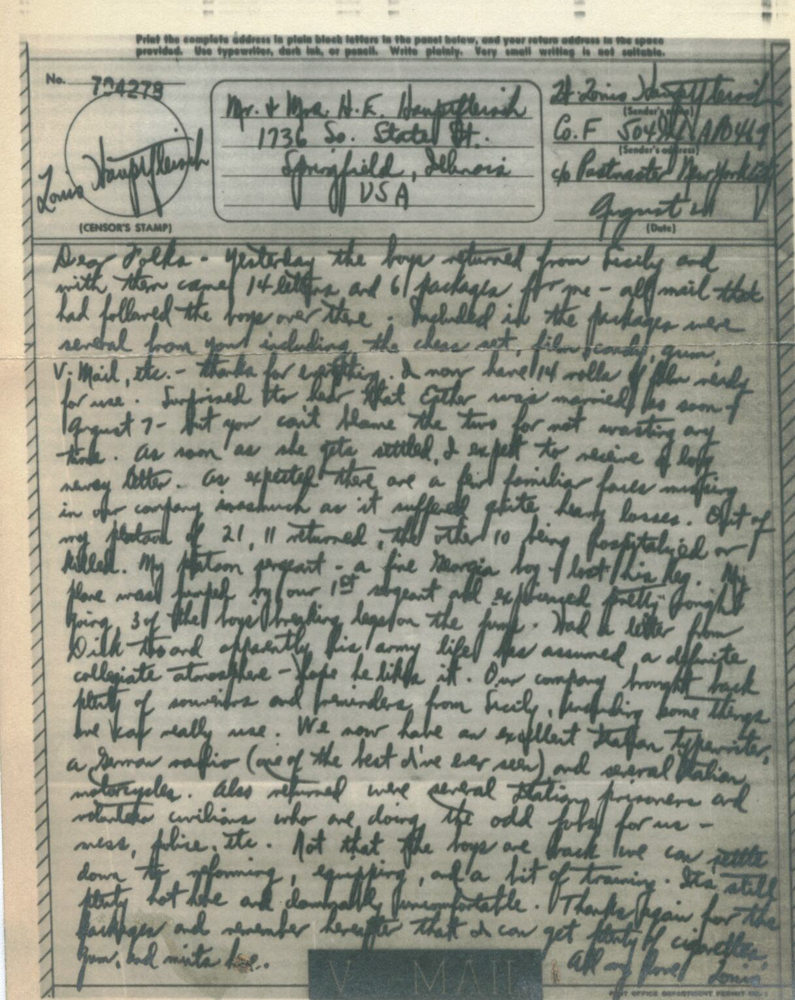 Print the complete address in plain block letters in the panel below, and your return address in the space
provided. Use typewriter, dark ink, or pencil. Write plainly. Very small writing is not suitable.
No. 704279
Louis Haupfleisch
(CENSOR'S STAMP)
Mr. & Mrs. H.E. Haupfleisch
1736 So. State St.
Springfield, Illinois
USA
Lt. Louis Haupfleisch
(Sender's name)
Co. F 504 APO 469
(Sender's address)
c/o Postmaster New York City
August 21
(Date)
Dear Folks - Yesterday the boys returned from Sicily and
with them came 14 letters and 6 packages for me - all mail that
had followed the boys over there. Included in the packages were
several from you including the chess set, film, candy, gum,
V-Mail, etc. - thanks for everything. I now have 14 rolls of film ready
for use. Surprised to hear that Esther was married as soon as
August 7 - but you can't blame the two for not wasting any
time. As soon as she gets settled, I expect to receive a long
newsy letter. As expected there are a few familiar faces missing
in our company inasmuch as it suffered quite heavy losses. Out of
my platoon of 21, 11 returned, the other 10 being hospitalized or
killed. My platoon sergeant - a fine Georgia boy - lost his leg. My
plane was jumped by our 1st sergeant and experienced pretty rough
going, 3 of the boys breaking legs on the jump. Had a letter from
Dick too and apparently his army life has assumed a definite
collegiate atmosphere - hope he likes it. Our company brought back
plenty of souvenirs and reminders from Sicily, including some things
we can really use. We now have an excellent Italian typewriter,
a German radio (one of the best I've ever seen) and several Italian
motorcycles. Also returned were several Italian prisoners and
volunteer civilians who are doing the odd jobs for us -
mess, police, etc. Not that the boys are back we can settle
down to reforming, equipping, and a bit of training. Its still
plenty hot here and damnably uncomfortable. Thanks again for the
packages and remember hereafter that I can get plenty of cigarettes,
gum, and mints here..
All my love Louis
V - MAIL
POST OFFICE DEPARTMENT PERMIT NO.